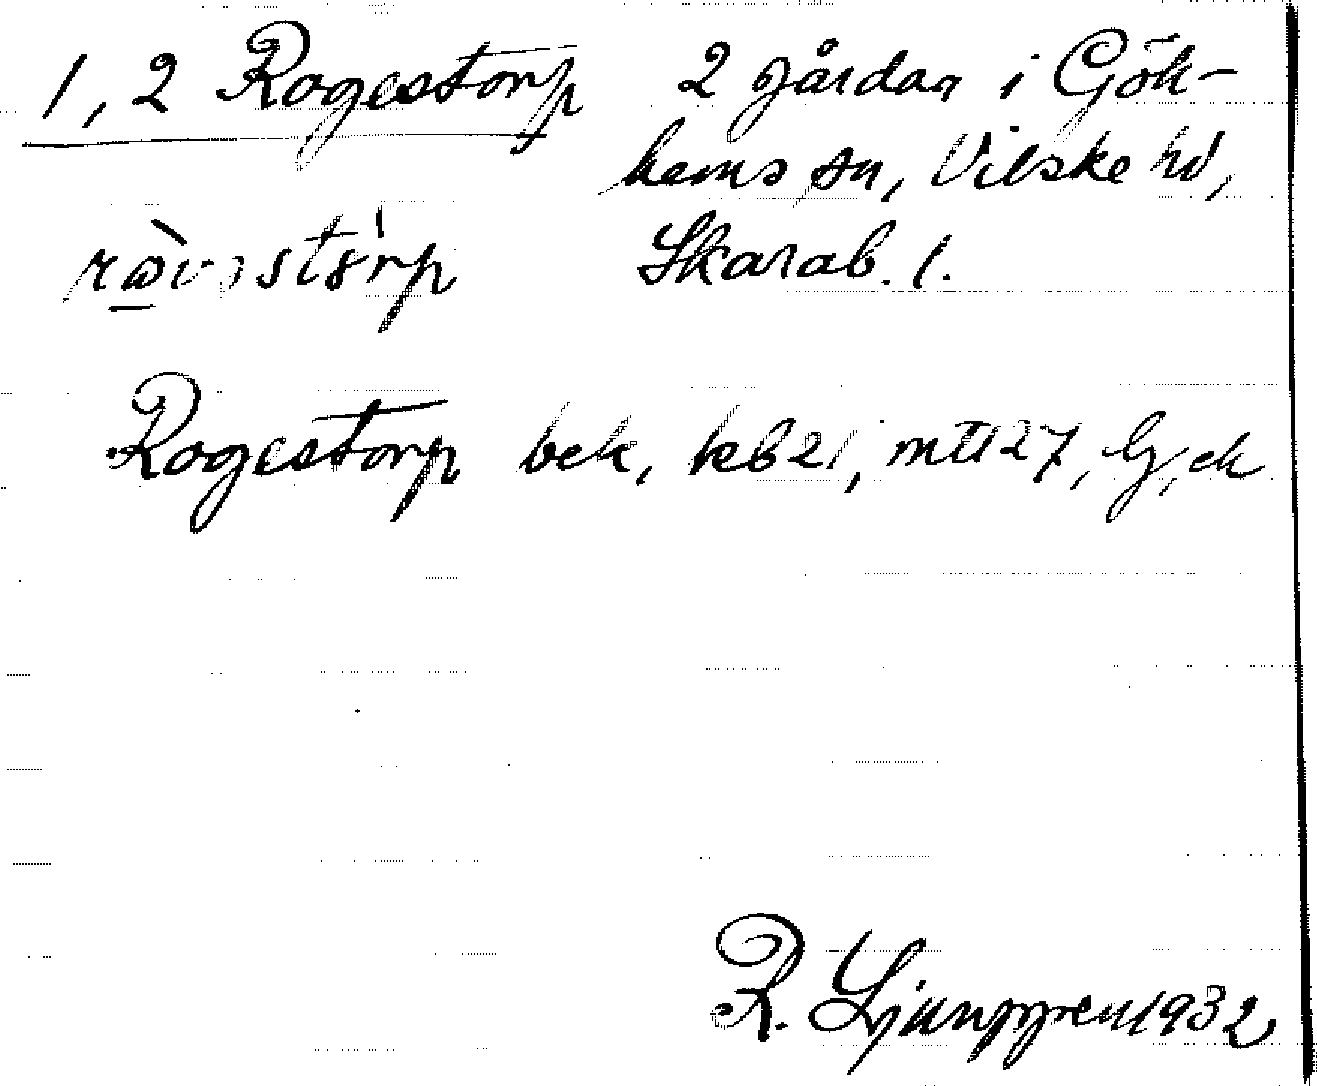 1, 2 Rogestorp 2 gårdar i Gök-
hems sn, Vilske hd,
Skarab. l.
Rogestorp bek, kb 21, mtl 27, Gj, ek
R. Ljunggren 1932